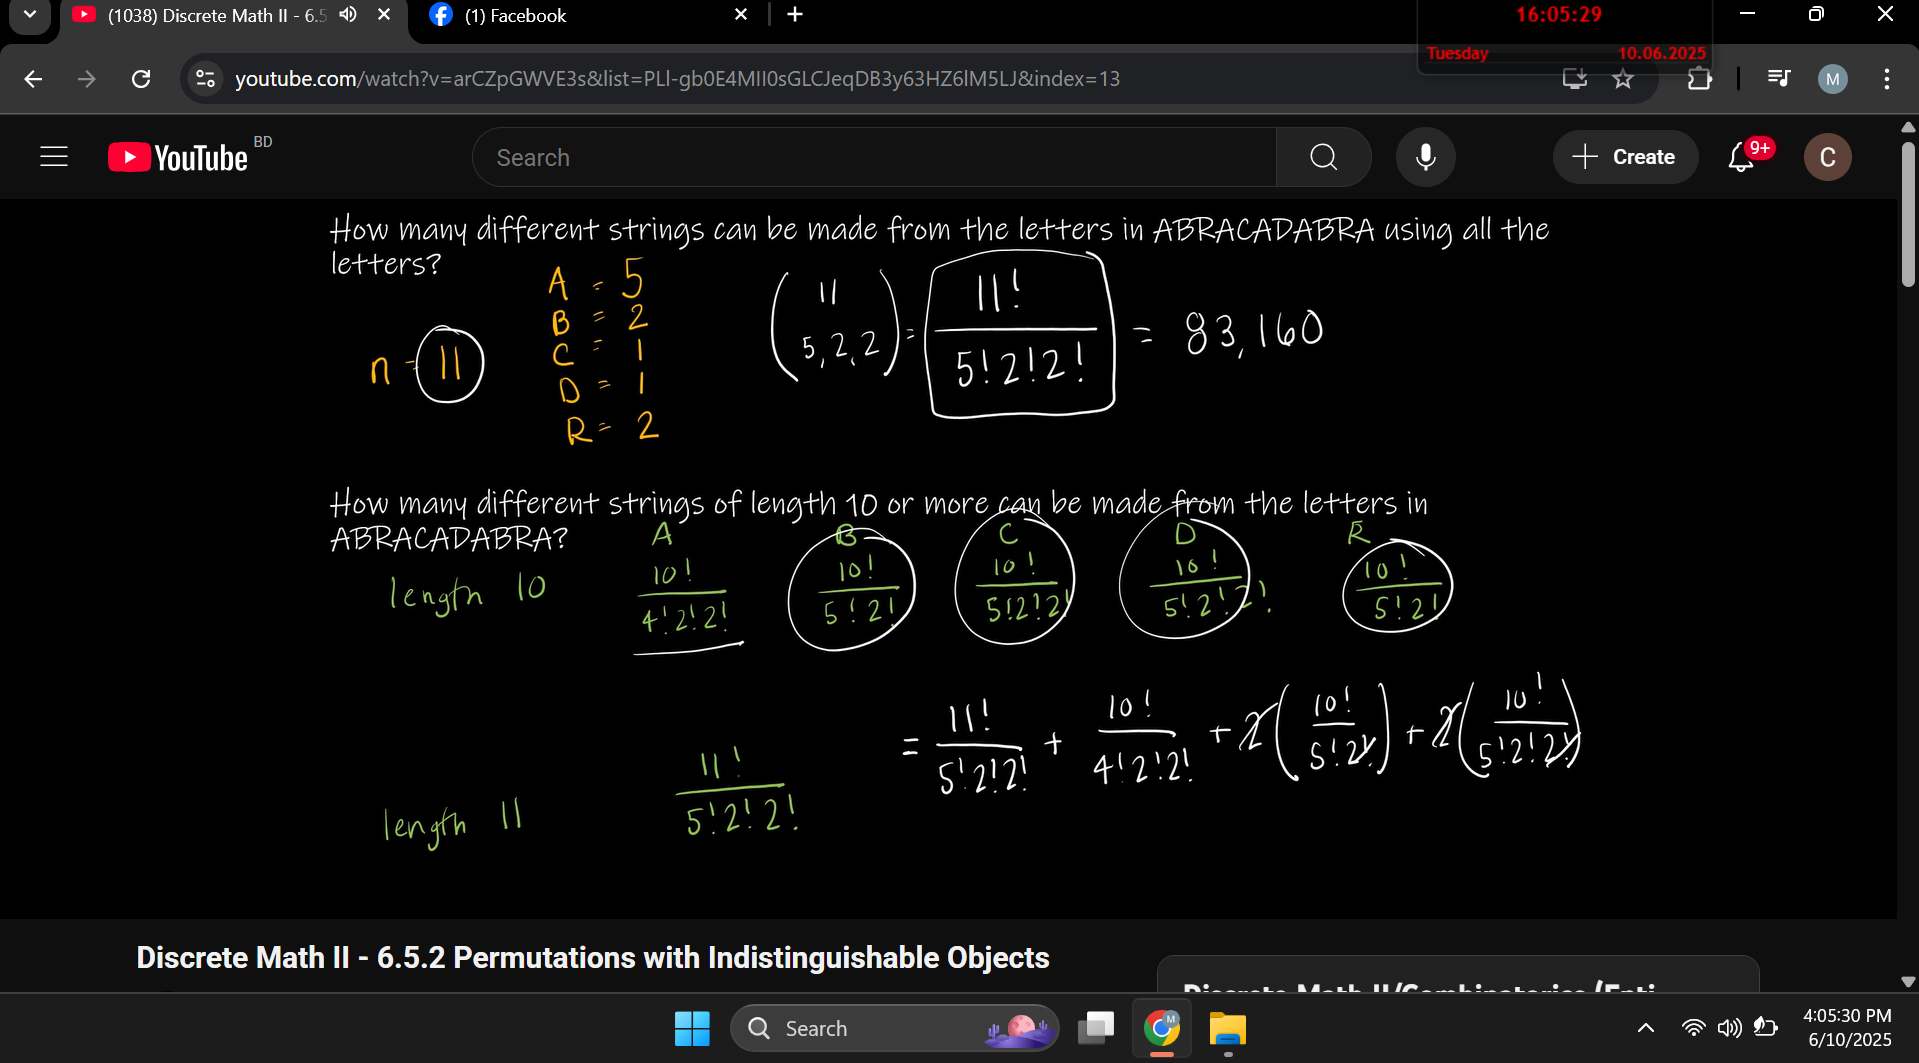 (1038) Discrete Math II - 6.5
(1) Facebook
16:05:29
Tuesday 10.06.2025
youtube.com/watch?v=arCZpGWVE3s&list=PLl-gb0E4MII0sGLCJeqDB3y63HZ6lM5LJ&index=13
M
YouTube BD
Search
Create
9+
C
How many different strings can be made from the letters in ABRACADABRA using all the
letters?
n = 11
A = 5
B = 2
C = 1
D = 1
R = 2
(11 5,2,2) = 11! / 5!2!2! = 83,160
How many different strings of length 10 or more can be made from the letters in
ABRACADABRA?
A B C D R
length 10 10!/4!2!2! 10!/5!2! 10!/5!2!2! 10!/5!2!2! 10!/5!2!
= 11!/5!2!2! + 10!/4!2!2! + 2(10!/5!2!) + 2(10!/5!2!2!)
length 11 11!/5!2!2!
Discrete Math II - 6.5.2 Permutations with Indistinguishable Objects
Search
M
4:05:30 PM
6/10/2025